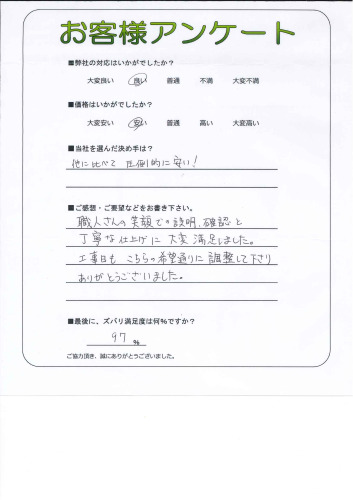 お客様アンケート
■弊社の対応はいかがでしたか？
大変良い 良い 普通 不満 大変不満
■価格はいかがでしたか？
大変安い 安い 普通 高い 大変高い
■当社を選んだ決め手は？
他に比べて 圧倒的に安い！
■ご感想・ご要望などをお書き下さい。
職人さんの笑顔での説明、確認と
丁寧な仕上げに 大変 満足しました。
工事日も こちらの希望通りに 調整して下さり
ありがとうございました。
■最後に、ズバリ満足度は何％ですか？
97 %
ご協力頂き、誠にありがとうございました。